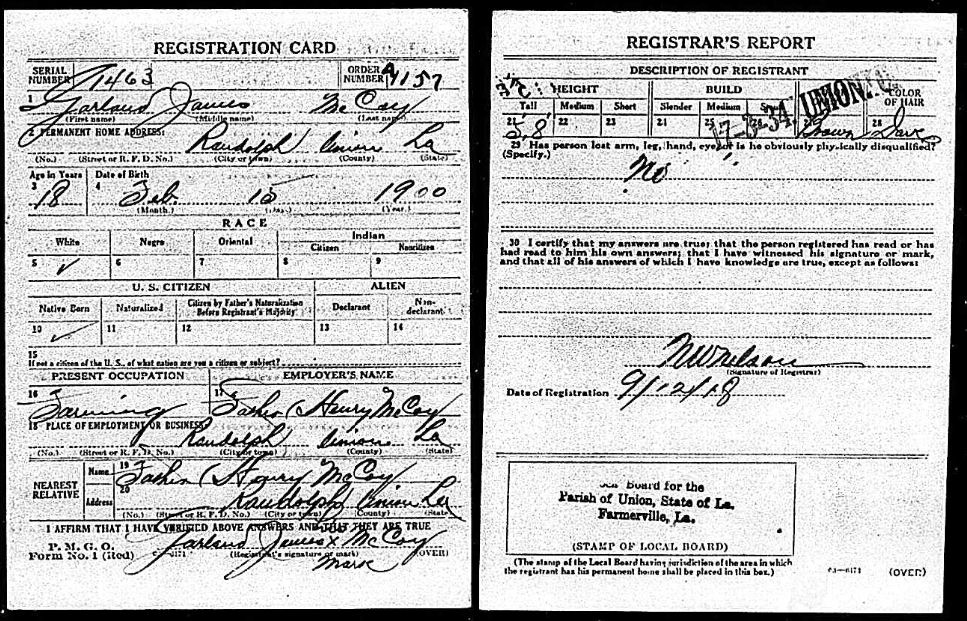 REGISTRATION CARD
SERIAL NUMBER 1463 ORDER NUMBER A1157
1 Garland James McCoy
(First name) (Middle name) (Last name)
2 PERMANENT HOME ADDRESS:
Randolph Union La
(No.) (Street or R. F. D. No.) (City or town) (County) (State)
Age in Years Date of Birth
3 18 4 Feb. 15 1900
(Month.) (Day.) (Year.)
RACE
White Negro Oriental Indian
Citizen Noncitizen
5 ✓ 6 7 8 9
U. S. CITIZEN ALIEN
Native Born Naturalized Citizen by Father's Naturalization Before Registrant's Majority Declarant Non-declarant
10 ✓ 11 12 13 14
15
If not a citizen of the U. S., of what nation are you a citizen or subject?
PRESENT OCCUPATION EMPLOYER'S NAME
16 Farming 17 Father (Henry McCoy
18 PLACE OF EMPLOYMENT OR BUSINESS:
Randolph Union La
(No.) (Street or R. F. D. No.) (City or town) (County) (State)
NEAREST RELATIVE Name 19 Father (Henry McCoy
Address 20 Randolph Union La
(No.) (Street or R. F. D. No.) (City or town) (County) (State)
I AFFIRM THAT I HAVE VERIFIED ABOVE ANSWERS AND THAT THEY ARE TRUE
P. M. G. O.
Form No. 1 (Red) Garland James x McCoy
(Registrant's signature or mark) (OVER)
Mark
REGISTRAR'S REPORT
DESCRIPTION OF REGISTRANT
HEIGHT BUILD COLOR OF HAIR
Tall Medium Short Slender Medium
21 5' 8" 22 23 24 25 Brown 28
17-3-34. UNION
29 Has person lost arm, leg, hand, eye, or is he obviously physically disqualified?
(Specify.)
No
30 I certify that my answers are true; that the person registered has read or has
had read to him his own answers; that I have witnessed his signature or mark,
and that all of his answers of which I have knowledge are true, except as follows:
(Signature of Registrar)
Date of Registration 9/12/18
Board for the
Parish of Union, State of La.
Farmerville, La.
(STAMP OF LOCAL BOARD)
(The stamp of the Local Board having jurisdiction of the area in which
the registrant has his permanent home shall be placed in this box.)
(OVER)